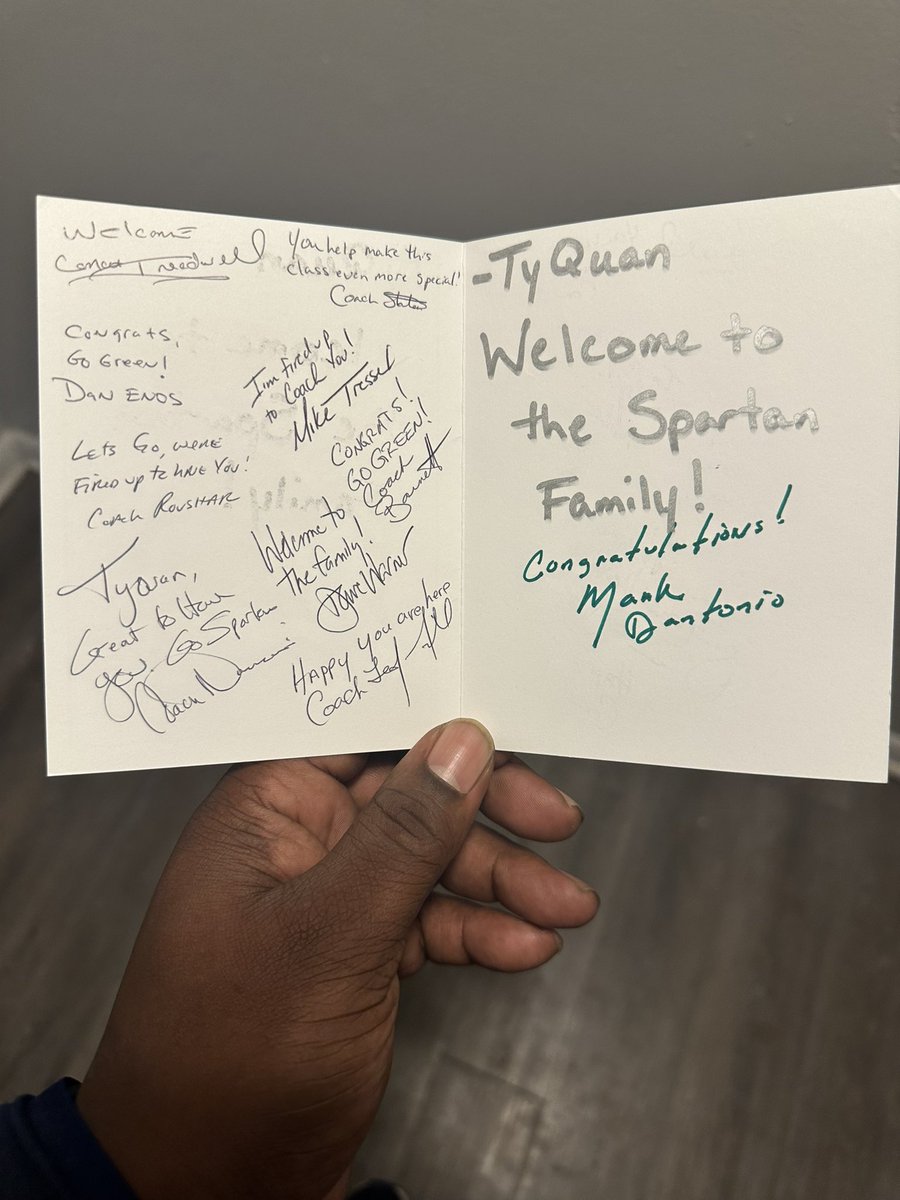 Welcome
Coach Treadwell
You help make this
class even more special!
Coach
Congrats,
Go Green!
Dan Enos
I'm fired up
to Coach You!
Mike Tressel
Lets Go, were
Fired up to have You!
Coach Roushar
CONGRATS!
GO GREEN!
Coach
Barnett
Welcome to
the family!
Dave Warner
TyQuan,
Great to Have
you. Go Spartans
Happy you are here
Coach
-TyQuan
Welcome to
the Spartan
Family!
Congratulations!
Mark
Dantonio